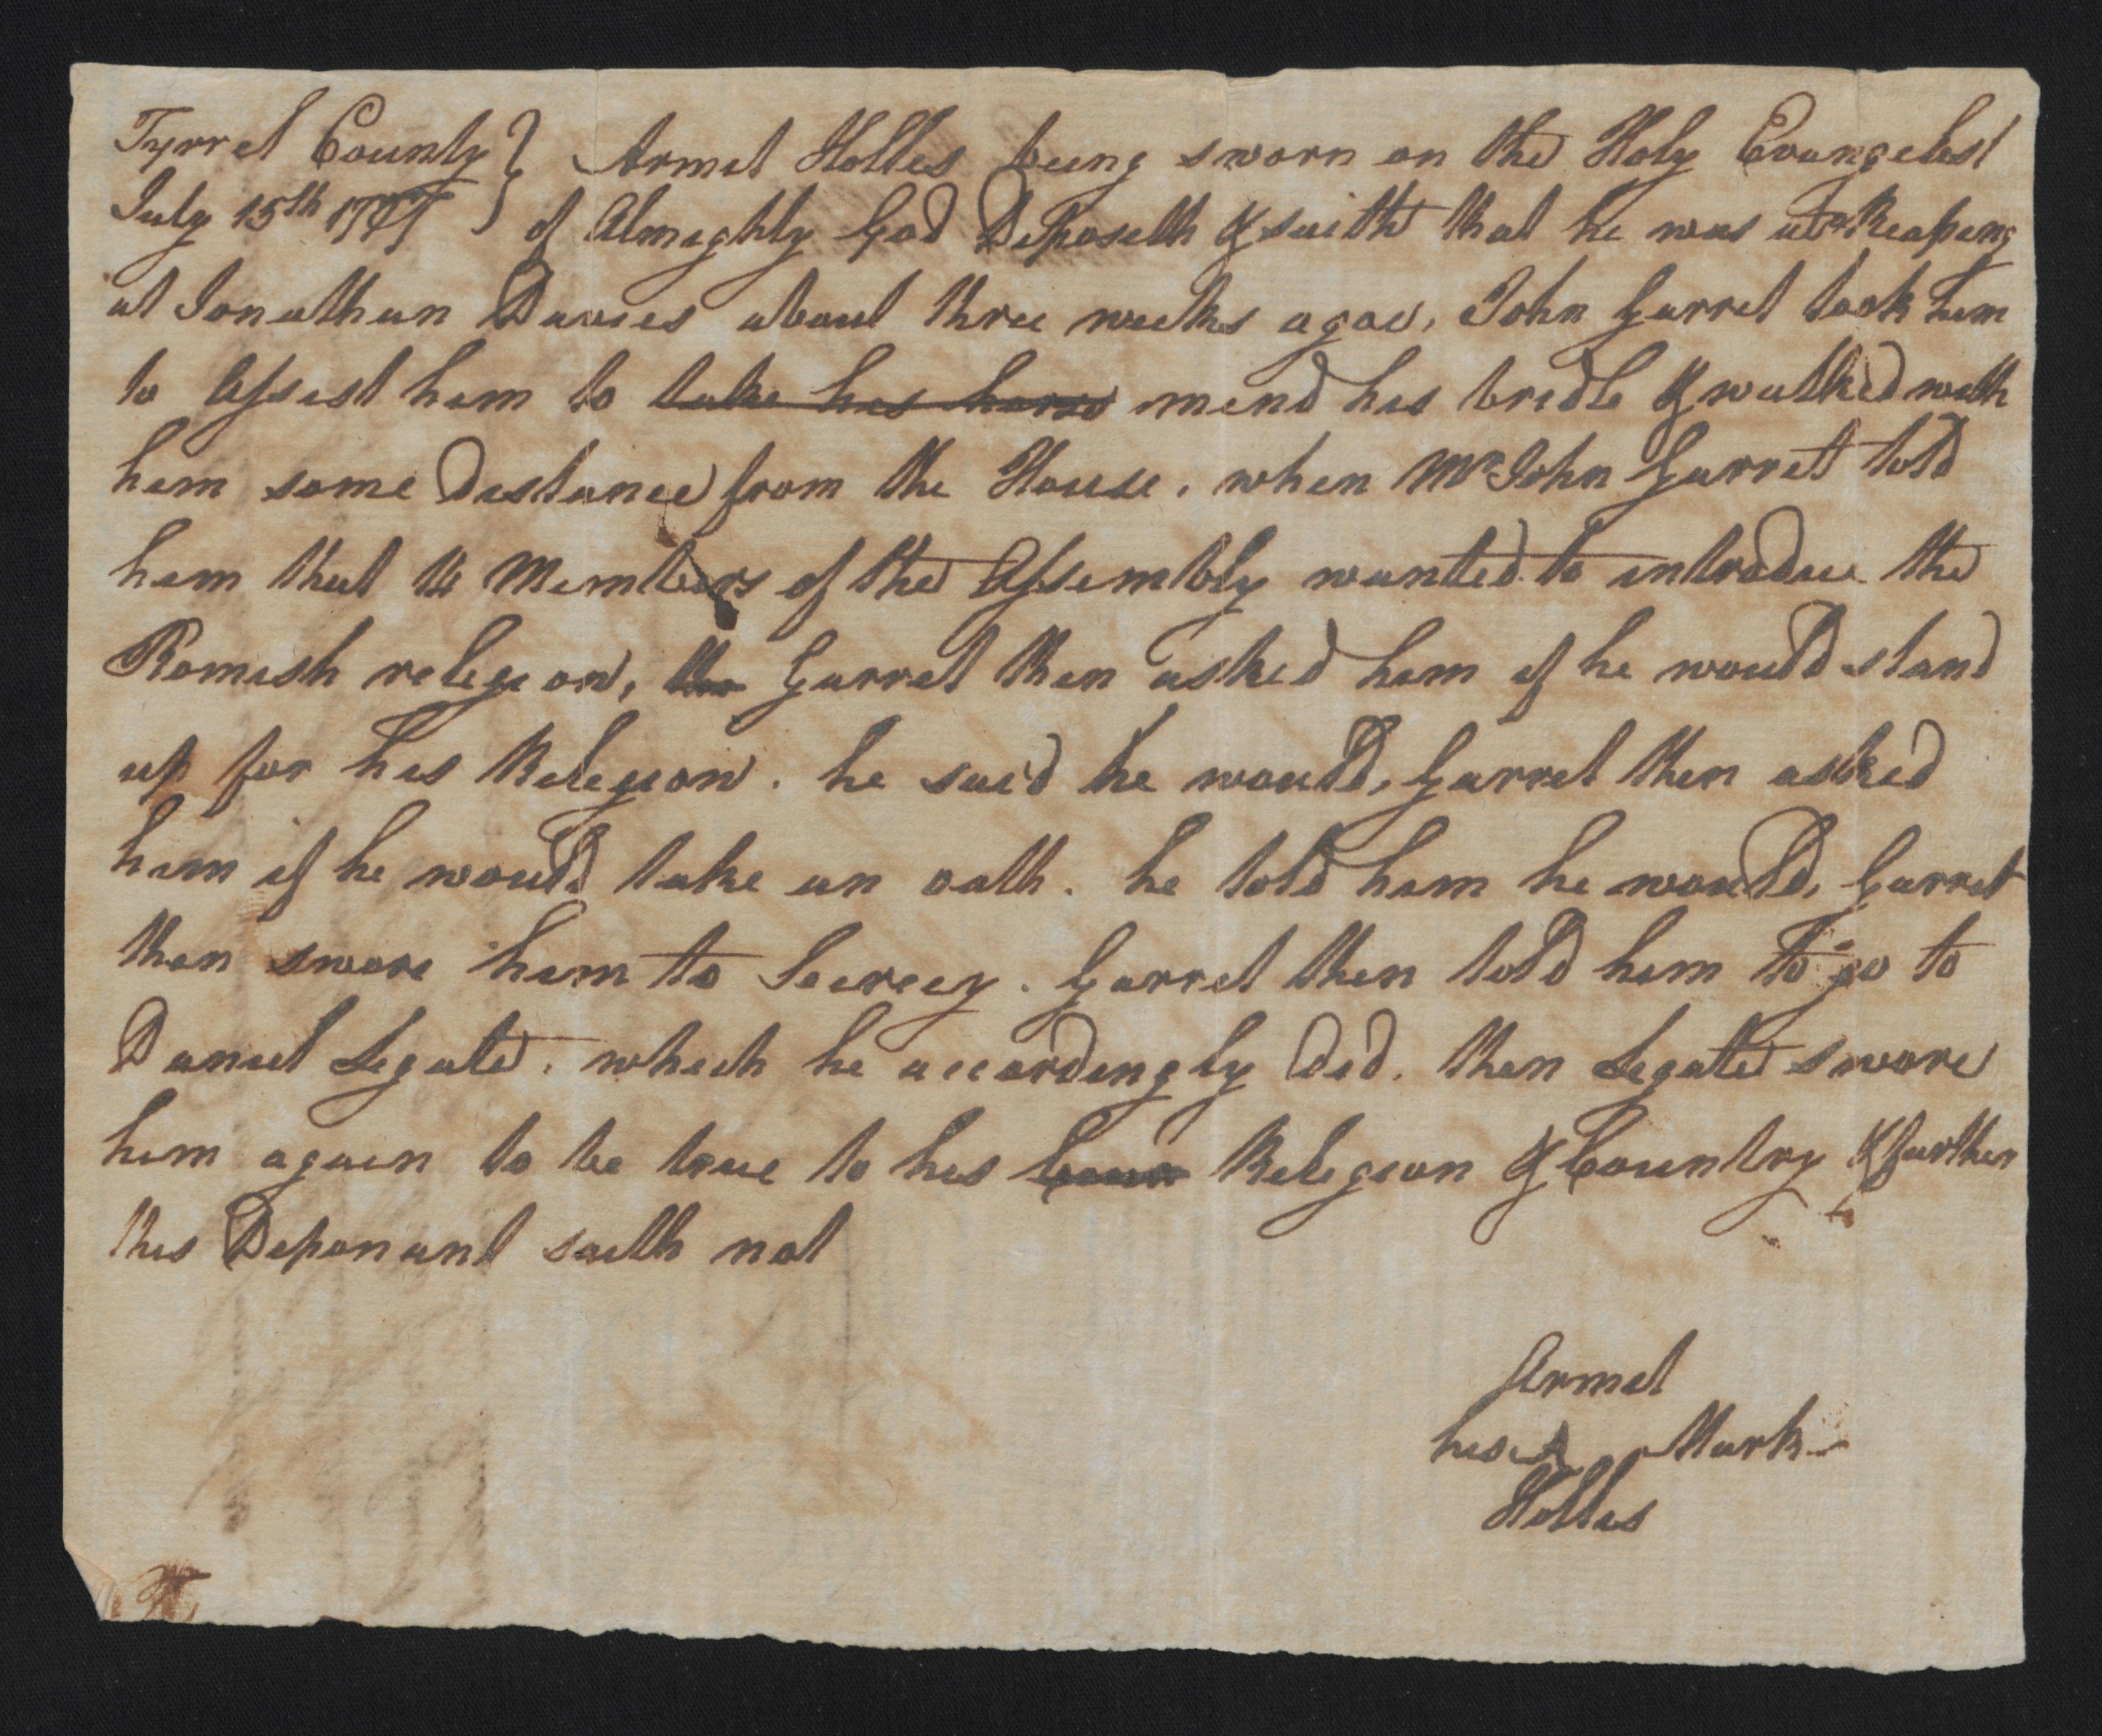 Tyrrel County } Armel Holles being sworn on the Holy Evangelest
July 15th 1777 } of Almighty God Deposeth & saith that he was at a Reaping
at Jonathan Davies about three weeks agoe, John Garret took him
to Assist him to take his horse mend his bridle & walked with
him some Distance from the House, when Mr John Garret told
him that the Members of the Assembly wanted to introduce the
Romish religion, the Garret then asked him if he would stand
up for his Religion. he said he would, Garret then asked
him if he would take an oath. he told him he would, Garret
then swore him to Secrecy. Garret then told him to go to
Daniel Legate, which he accordingly Did. then Legate swore
him again to be true to his Coun Religion & Country & further
this Deponant saith not
Armel
his A Mark
Holles